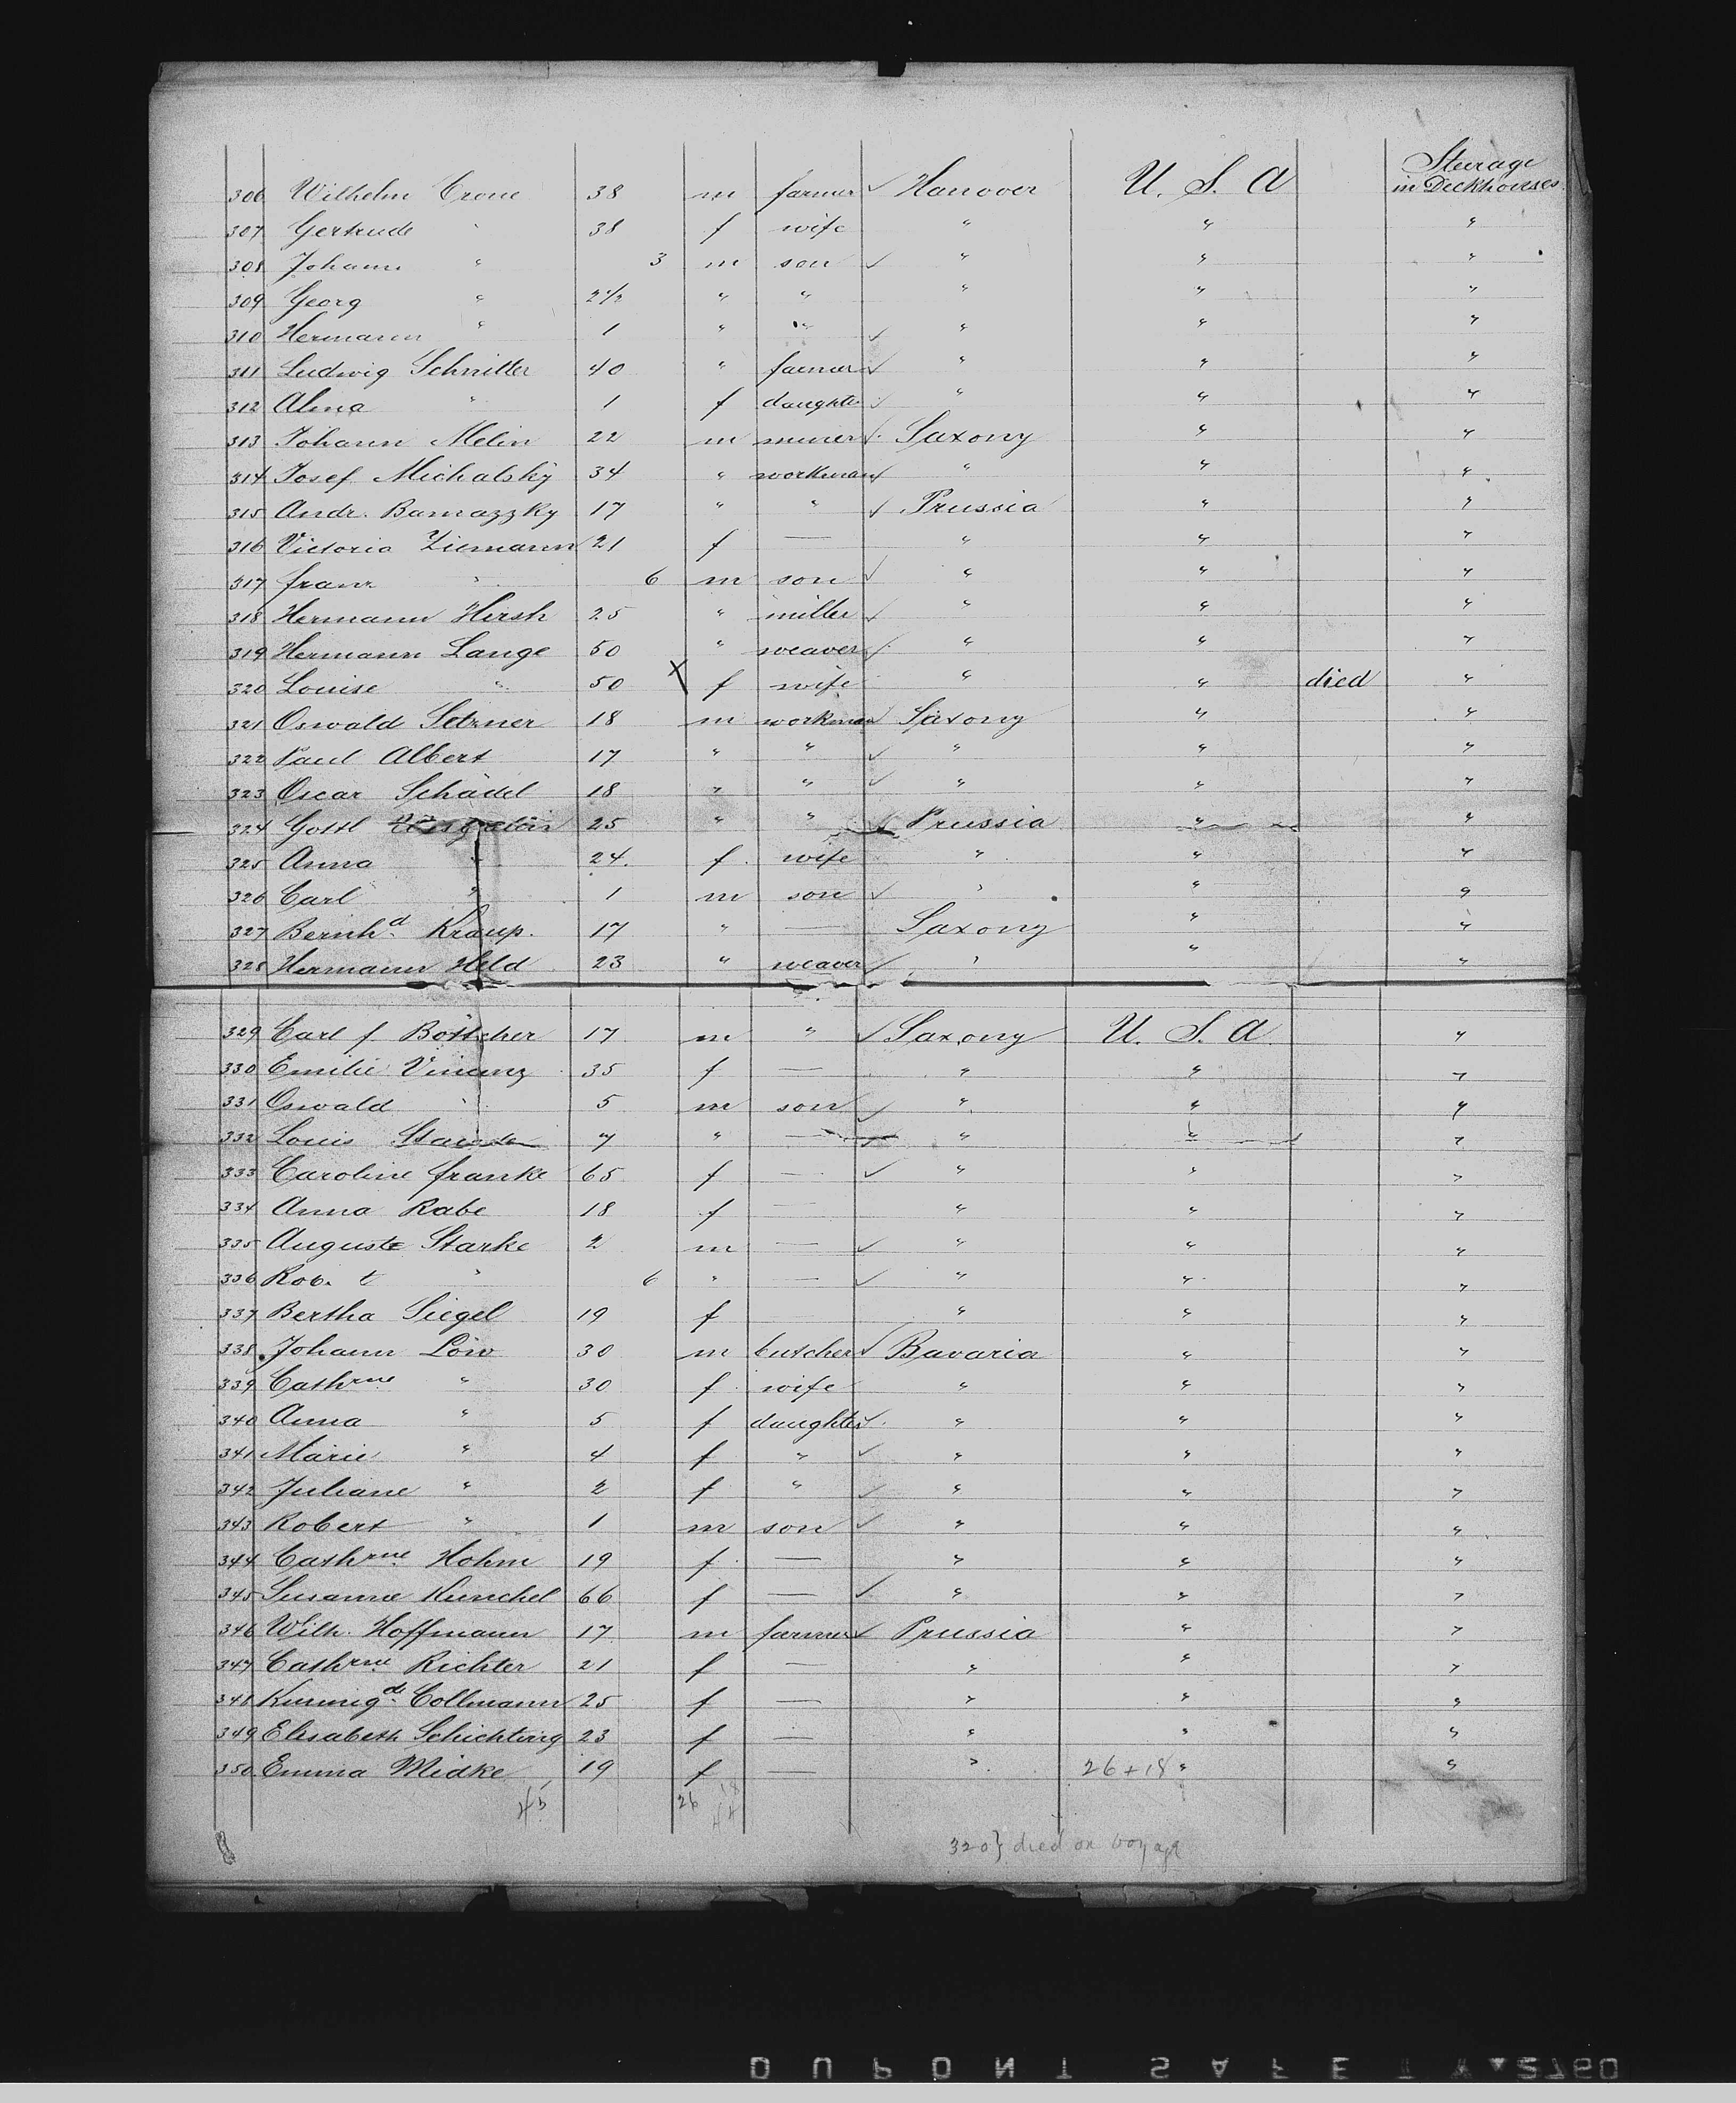 Steerage
in Deckhouses
306 Wilhelm Crone 38 m farmer ✓ Hanover U. S. A
307 Gertrude " 38 f wife " " "
308 Johann " 3 m son ✓ " " "
309 Georg " 2 1/2 " " " " "
310 Hermann " 1 " " ✓ " " "
311 Ludwig Schnitter 40 " farmer ✓ " " "
312 Alma " 1 f daughter ✓ " " "
313 Johann Melin 22 m miner ✓ Saxony " "
314 Josef Michalsky 34 " workman ✓ " " "
315 Andr. Bamazzky 17 " " ✓ Prussia " "
316 Victoria Ziemann 21 f — " " "
317 franz " 6 m son ✓ " " "
318 Hermann Hirsh 25 " miller ✓ " " "
319 Hermann Lange 50 " weaver ✓ " " "
320 Louise " 50 X f wife " " died "
321 Oswald Setzner 18 m workman ✓ Saxony " "
322 Paul Albert 17 " " ✓ " " "
323 Oscar Schädel 18 " " ✓ " " "
324 Gottl 25 " " ✓ Prussia " "
325 Anna " 24. f. wife " " "
326 Carl " 1 m son ✓ " " "
327 Bernhd. Kraup. 17 " — Saxony " "
328 Hermann Held 23 " weaver ✓ " " "
329 Carl f. Böttcher 17 m " ✓ Saxony U. S. A. "
330 Emilie Vincenz 35 f — " " "
331 Oswald " 5 m son ✓ " " "
332 Louis 7 " — ✓ " " "
333 Caroline franke 65 f — ✓ " " "
334 Anna Rabe 18 f — " " "
335 Auguste Starke 2 m — ✓ " " "
336 Rob. t " 6 " — ✓ " " "
337 Bertha Siegel 19 f " " "
338 Johann Löw 30 m butcher ✓ Bavaria " "
339 Cathrne " 30 f. wife " " "
340 Anna " 5 f daughter ✓ " " "
341 Marie " 4 f " ✓ " " "
342 Juliane " 2 f " ✓ " " "
343 Robert " 1 m son ✓ " " "
344 Cathrne Hohm 19 f. — " " "
345 Susanne Kunchel 66 f — ✓ " " "
346 Wilh. Hoffmann 17 m farmer ✓ Prussia " "
347 Cathrne Richter 21 f — " " "
348 Kunnigde. Collmann 25 f — " " "
349 Elisabeth Schichting 23 f — " " "
350. Emma Midke 19 f — " 26 + 18 " "
45 26 18
44
320} died on voyage
DUPONT SAFETY ▲2760